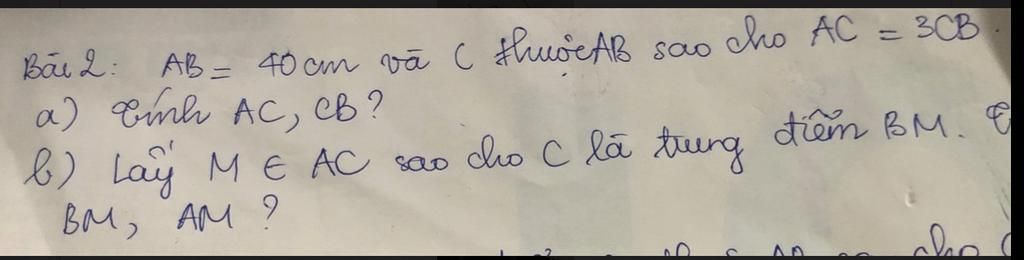 Bài 2: AB = 40cm và C thuộc AB sao cho AC = 3CB.
a) Tính AC, CB?
b) Lấy M ∈ AC sao cho C là trung điểm BM.
BM, AM?
cho